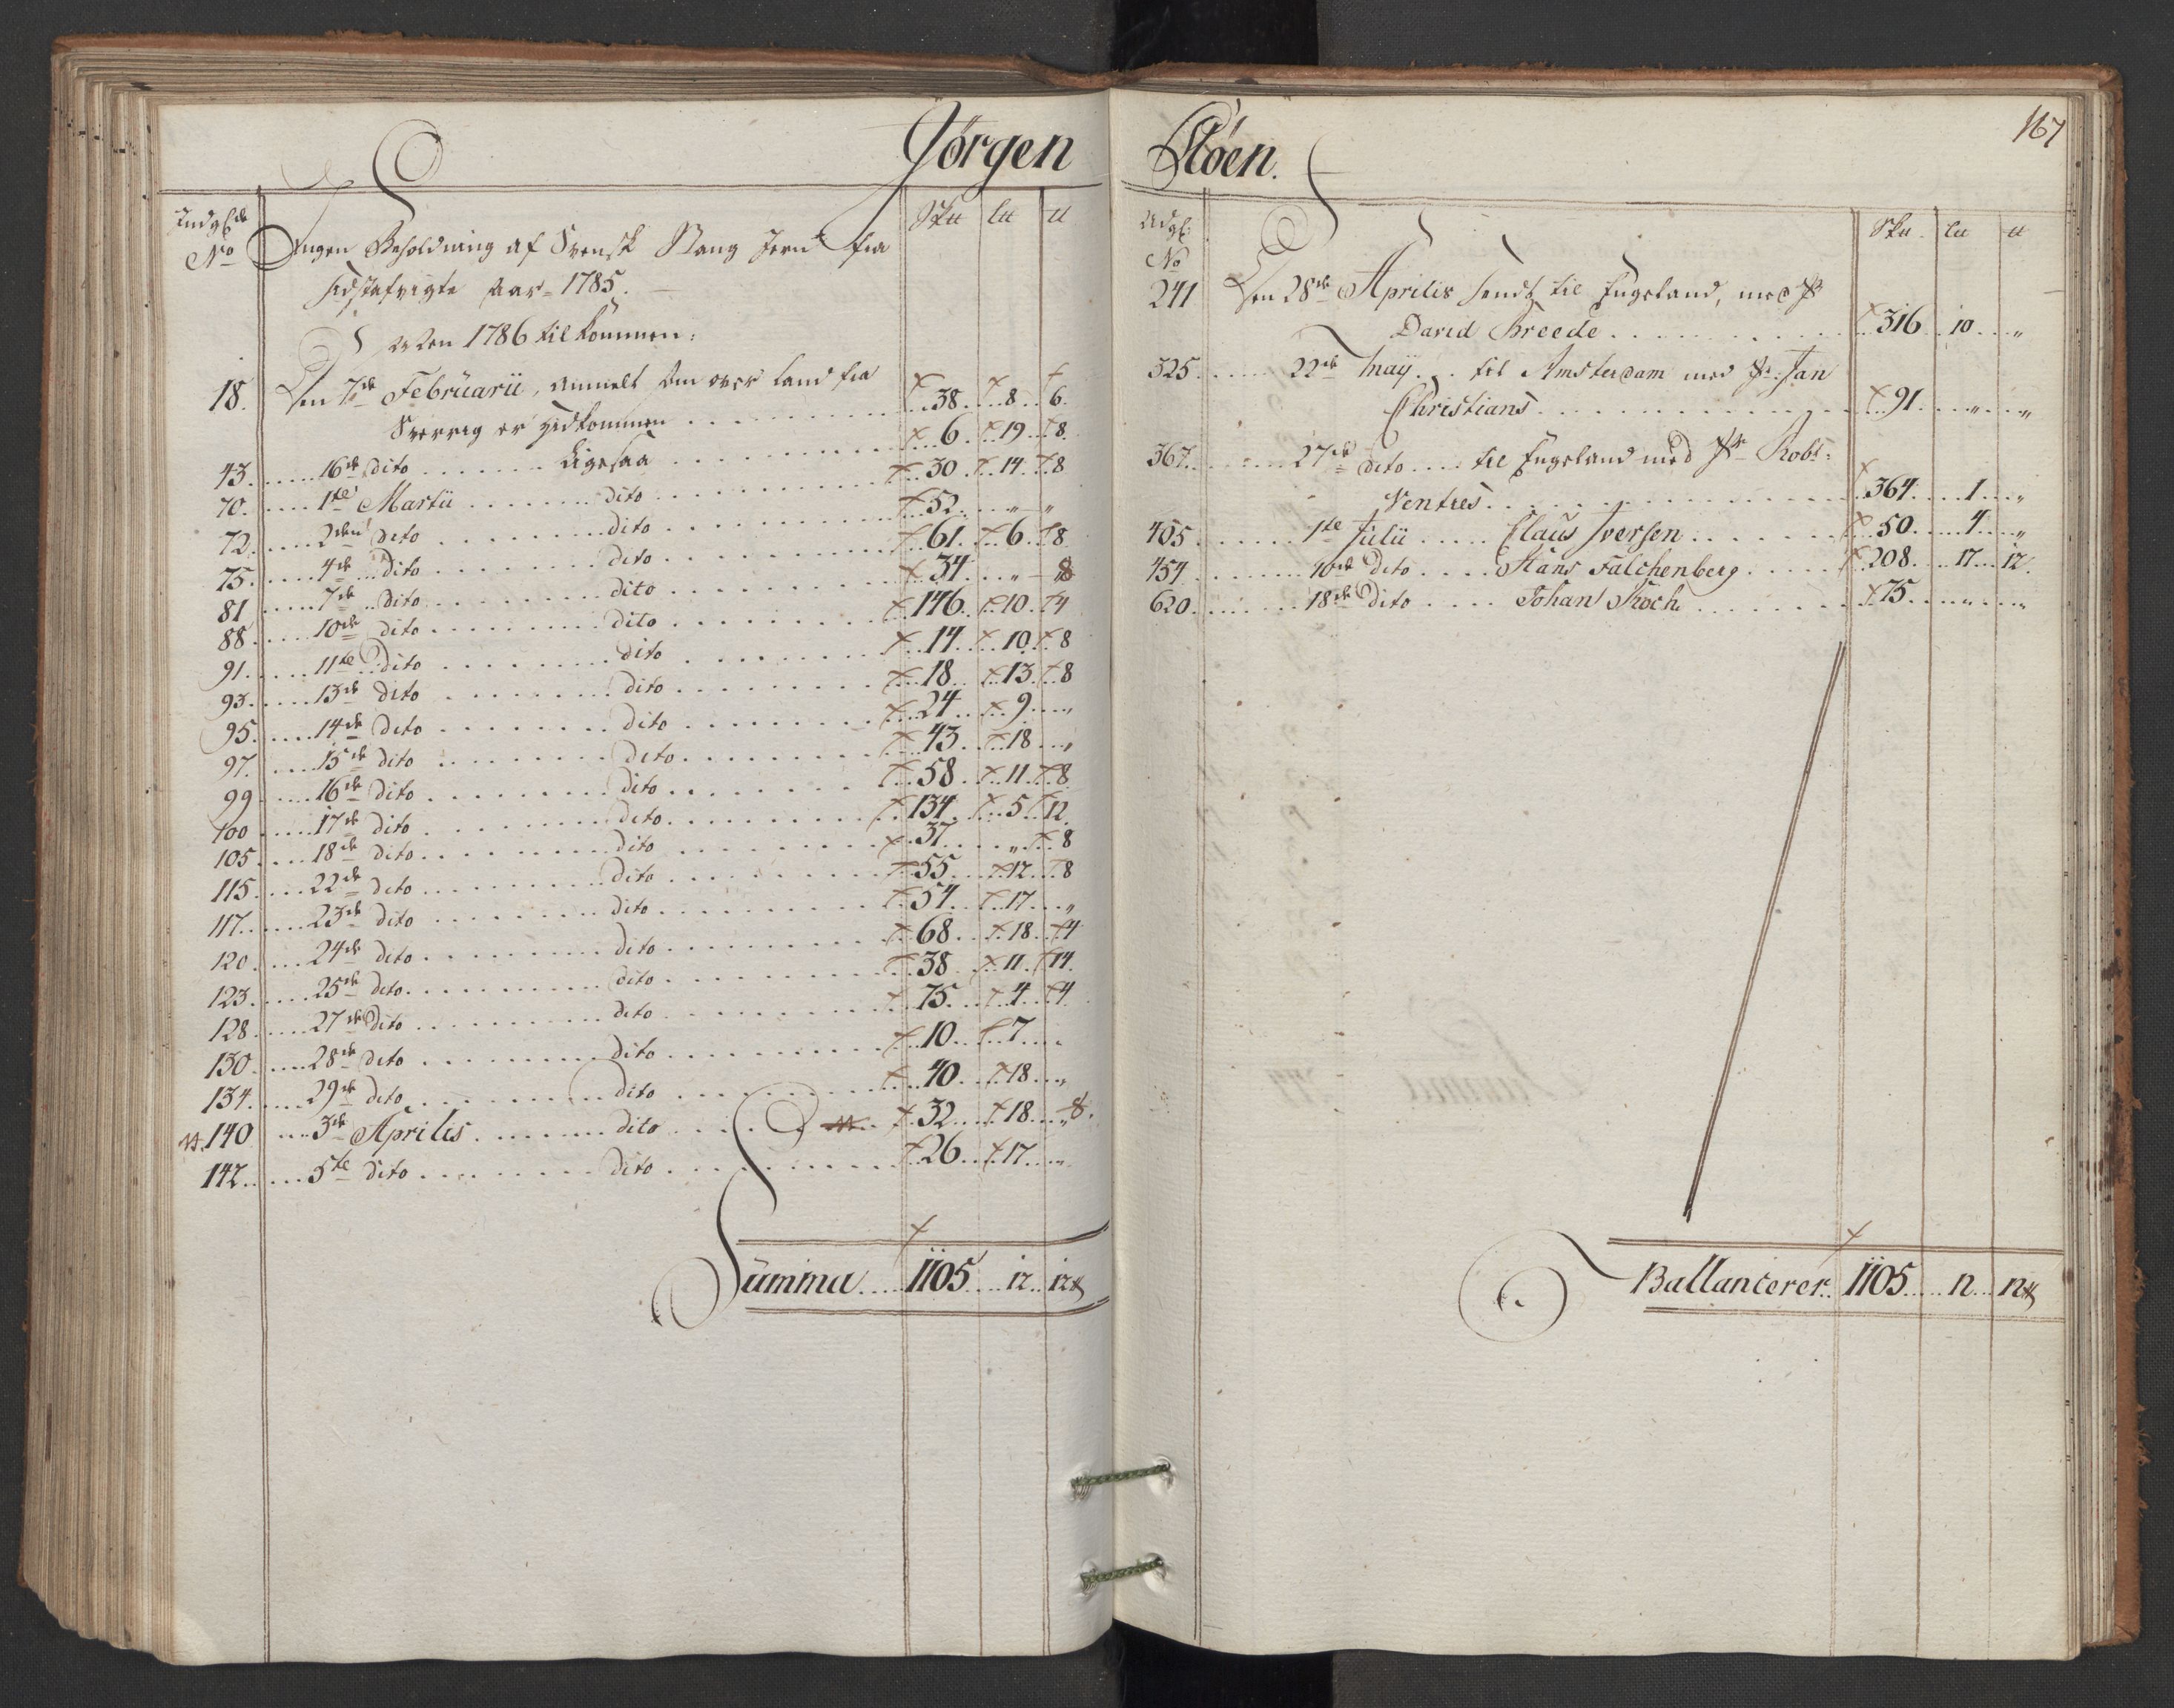 Jørgen Fløen.
167
Indg: No
Sk℔ L℔ ℔
Ingen Beholdning af Svensk Stang Jern fra
sidstafvigte Aar 1785.
Aaen 1786 tilkommen:
18. Den 7de Februarii, anmelt som over land fra
Sverrig er hidkommen 38. 8. 6.
43. 16de dito ligesaa 6. 19. 8.
70. 1te Martii dito 30. 14. 8
72. 2den dito dito 52. „ „
75. 4de dito dito 61. 6. 8
81 7de dito dito 34 „ 8
88. 10de dito dito 146. 10. 4
91. 11te dito dito 14. 10. 8
93. 13de dito dito 18. 13. 8
95. 14de dito dito 24. 9. „
97. 15de dito dito 43. 18. „
99 16de dito dito 58. 11. 8
100 17de dito dito 134. 5. 12.
105. 18de dito dito 37. „ 8
115. 22de dito dito 55. 12. 8
117. 23de dito dito 54. 17. „
120. 24de dito dito 68. 18. 4
123. 25de dito dito 38. 11. 14.
128. 27de dito dito 75. 4. 4
130. 28de dito dito 10. 7. „
134. 29de dito dito 40. 18. „
140 3de Aprilis dito 32. 18. „ 8.
142. 5te dito dito 26. 17. „
Summa 1105. 12. 12
Udg: No
Sk℔ L℔ ℔
241 Den 28de Aprilis sendt til Engeland, med Sr
David Breede 316. 10. „
325. 22de Maij til Amsterdam med Sr. Jan
Christians 91. „ „
367. 27de dito til Engeland med Sr Robt:
Ventres 364. 1. „
405 1te Julii Claus Iversen 50. 4. „
454 10de dito Hans Falchenberg 208. 17. 12.
620. 18de dito Johan Koch 75. „ „
Ballancerer 1105. 12. 12